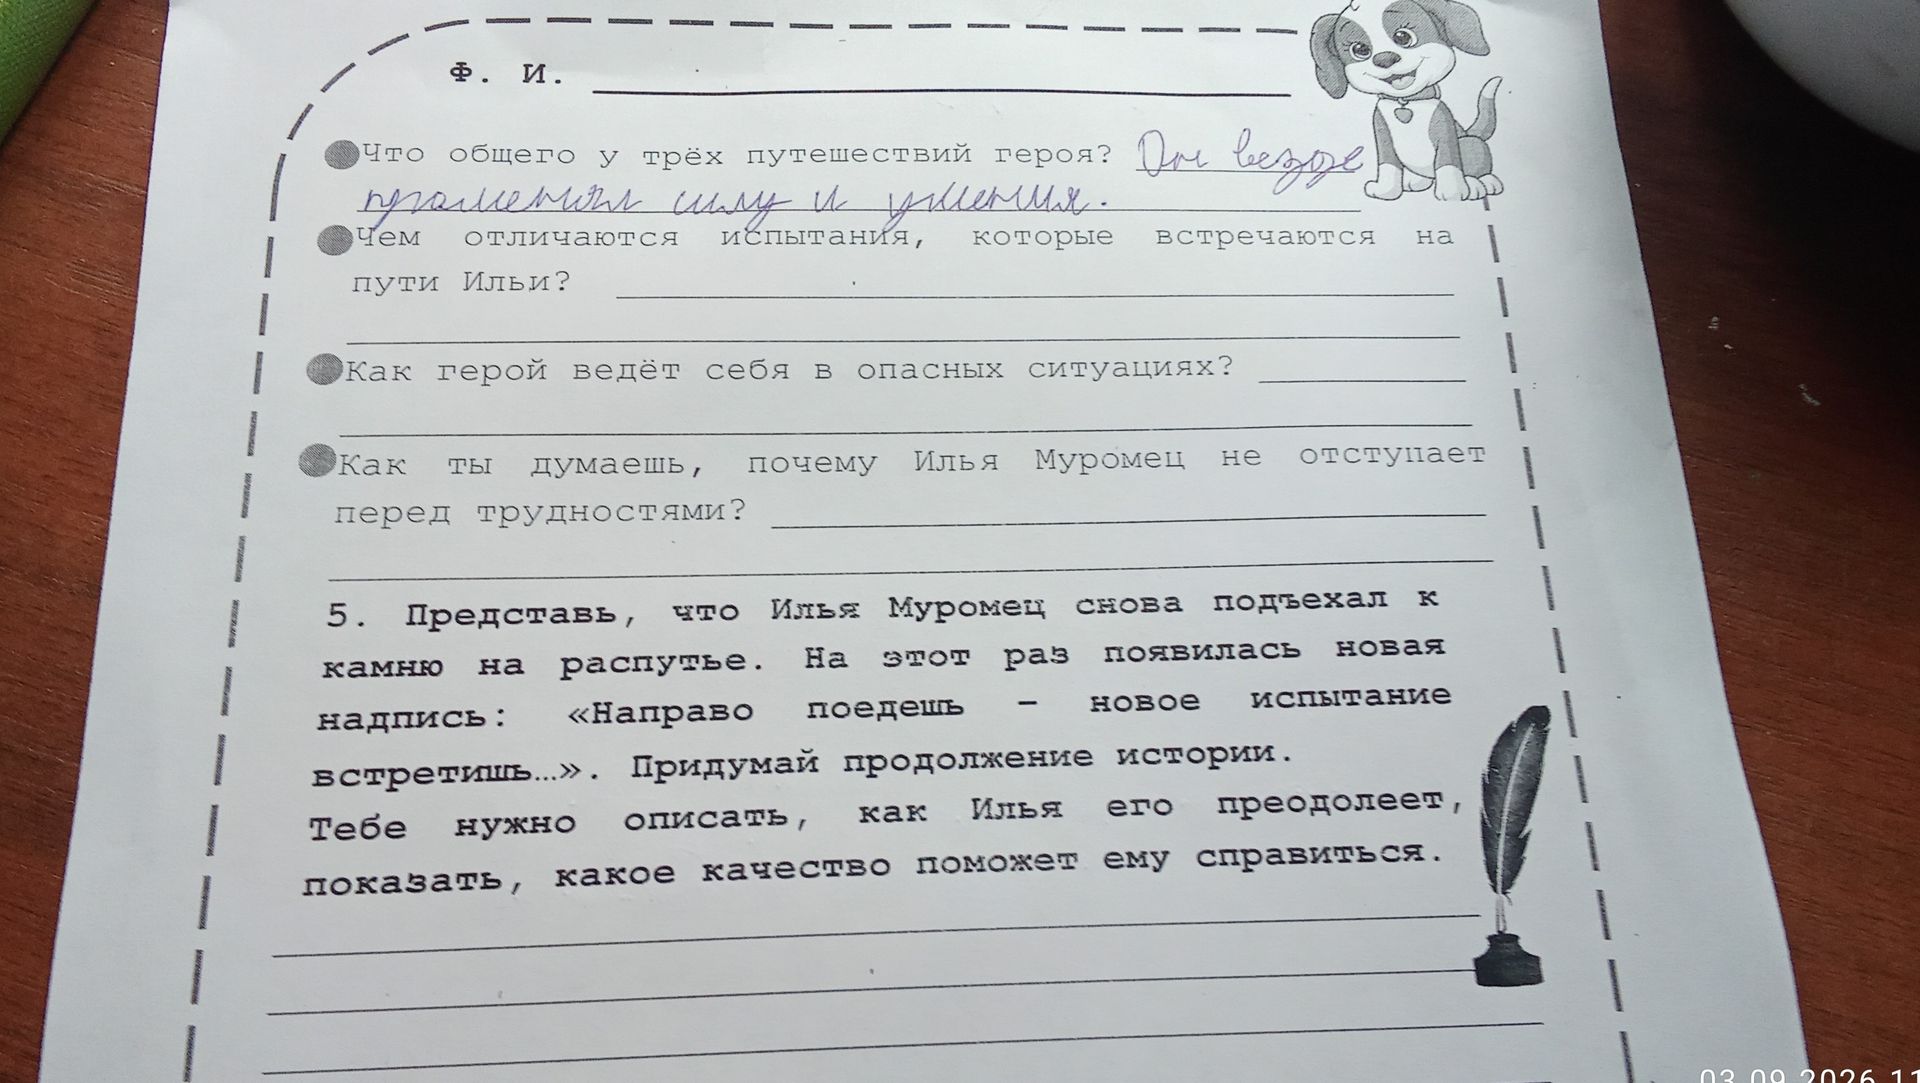 Ф. И.
Что общего у трёх путешествий героя? Он везде
применял силу и умения.
Чем отличаются испытания, которые встречаются на
пути Ильи?
Как герой ведёт себя в опасных ситуациях?
Как ты думаешь, почему Илья Муромец не отступает
перед трудностями?
5. Представь, что Илья Муромец снова подъехал к
камню на распутье. На этот раз появилась новая
надпись: «Направо поедешь – новое испытание
встретишь…». Придумай продолжение истории.
Тебе нужно описать, как Илья его преодолеет,
показать, какое качество поможет ему справиться.
03.09.2026 11